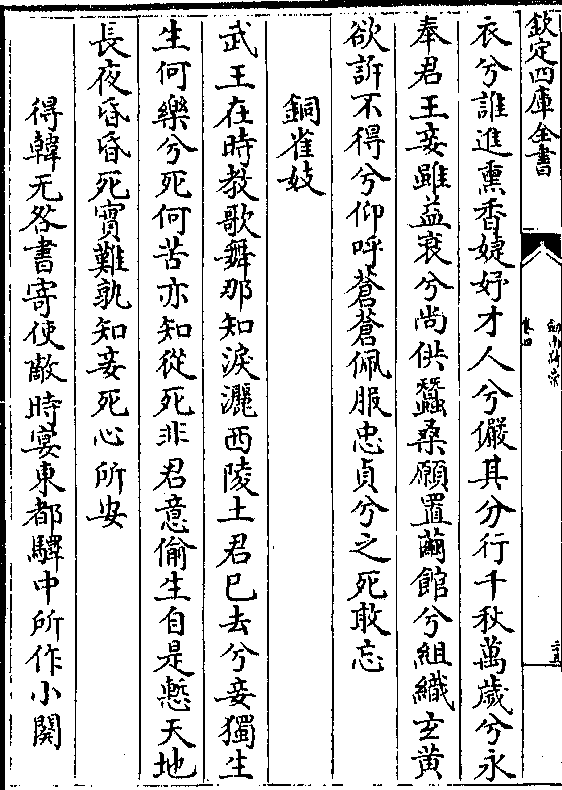 欽定四庫全書
劍南詩稾
卷四
衣兮誰進熏香婕妤才人兮儼其分行千秋萬歲兮永
奉君王妾雖益衰兮尚供蠶桑願置繭館兮組織玄黃
欲訴不得兮仰呼蒼蒼佩服忠貞兮之死敢忘
銅雀妓
武王在時教歌舞那知淚灑西陵土君已去兮妾獨生
生何樂兮死何苦亦知從死非君意偷生自是慙天地
長夜昏昏死實難孰知妾死心所安
得韓无咎書寄使敵時宴東都驛中所作小闋